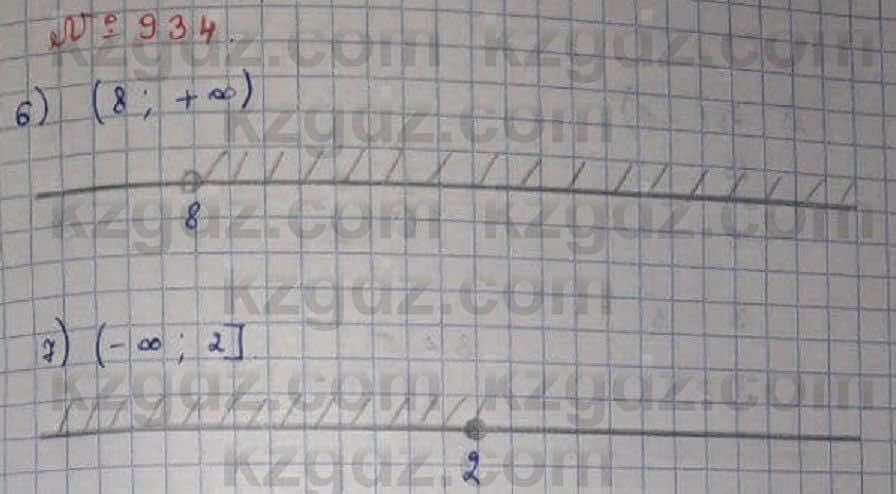 № 934.
kzgdz.com kzgdz.com
6) (8; +∞)
kzgdz.com
8
kzgdz.com kzgdz.com
kzgdz.com
7) (-∞; 2].
kzgdz.com kzgdz.com
2
kzgdz.com